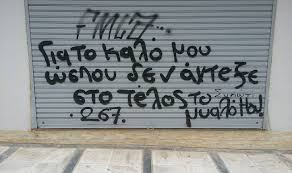 Για το καλό μου
ώσπου δεν άντεξε
στο τέλος το
μυαλό μου!
267.